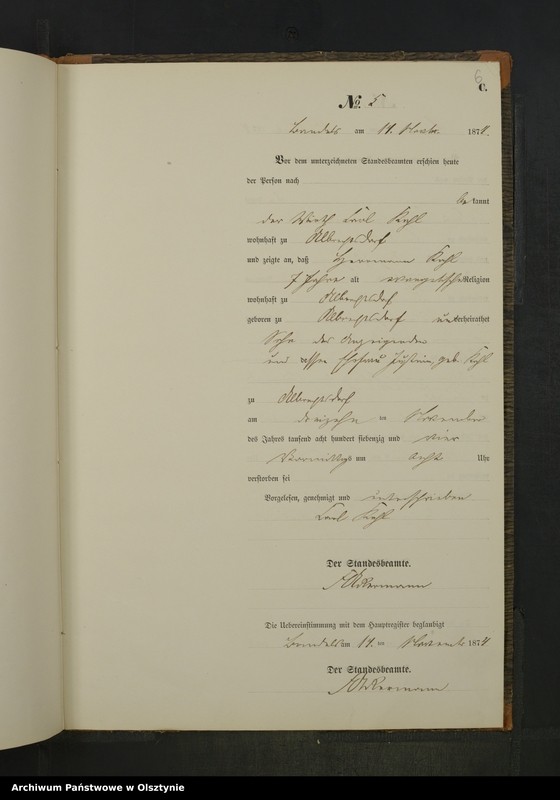 6
C.
No. 5
am 14. 1874.
Vor dem unterzeichneten Standesbeamten erschien heute
der Person nach
bekannt
der Wirth Carl
wohnhaft zu Albrechtsdorf
und zeigte an, daß Herrmann
7 Jahre alt evangelischer Religion
wohnhaft zu Albrechtsdorf
geboren zu Albrechtsdorf unverheirathet
Sohn des Anzeigenden
und dessen Ehefrau geb.
zu Albrechtsdorf
am dreizehn ten November
des Jahres tausend acht hundert siebenzig und vier
Vormittags um acht Uhr
verstorben sei
Vorgelesen, genehmigt und unterschrieben
Carl
Der Standesbeamte.
Ackermann
Die Uebereinstimmung mit dem Hauptregister beglaubigt
am 14. ten November 1874
Der Standesbeamte.
Ackermann
Archiwum Państwowe w Olsztynie